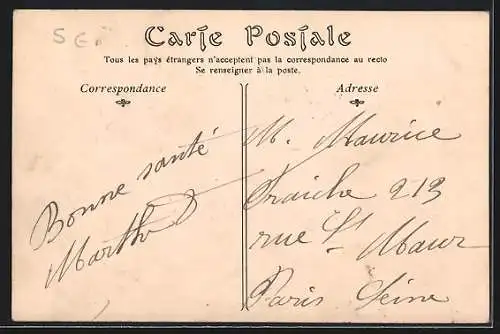 Carte Postale
Tous les pays étrangers n'acceptent pas la correspondance au recto
Se renseigner à la poste.
Correspondance
Adresse
Bonne santé
Marthe D
M. Maurice
Fraiche 213
rue St Maur
Paris Seine